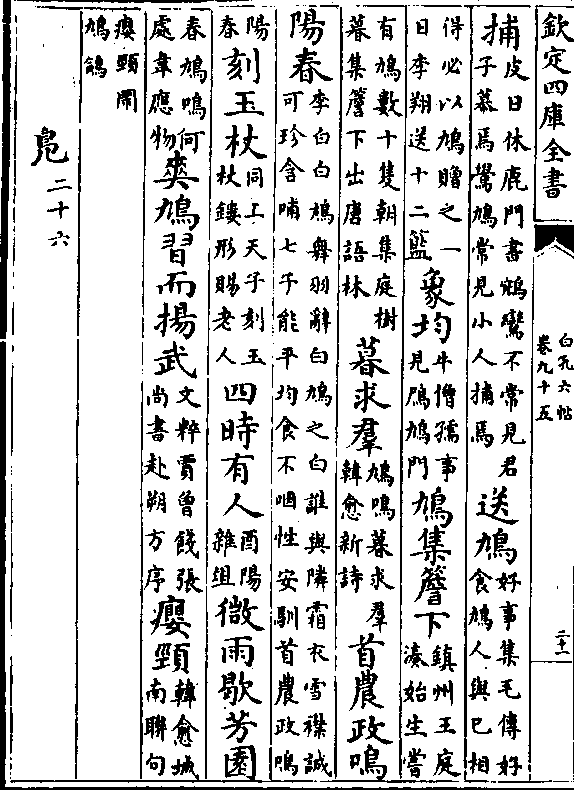 欽定四庫全書
白孔六帖
卷九十五
二十一
捕皮日休鹿門書鴆鸞不常見君
子慕焉鷽鳩常見小人捕焉送鳩好事集毛傅好
食鳩人與已相
得必以鳩贈之一
日李翔送十二籃象均牛僧孺事
見鳲鳩門鳩集簷下鎮州王庭
湊始生嘗
有鳩數十隻朝集庭樹
暮集簷下出唐語林暮求羣鳩鳴暮求羣
韓愈新詩首農政鳴
陽春李白白鳩舞羽辭白鳩之白誰與隣霜衣雪襟誠
可珍含哺七子能平均食不咽性安馴首農政鳴
陽
春刻玉杖同上天子刻玉
杖鏤形賜老人四時有人酉陽
雜俎微雨歇芳園
春鳩鳴何
處韋應物爽鳩習而揚武文粹賈曾餞張
尚書赴朔方序癭頸韓愈城
南聯句
癭頸閙
鳩鴿
鳧二十六